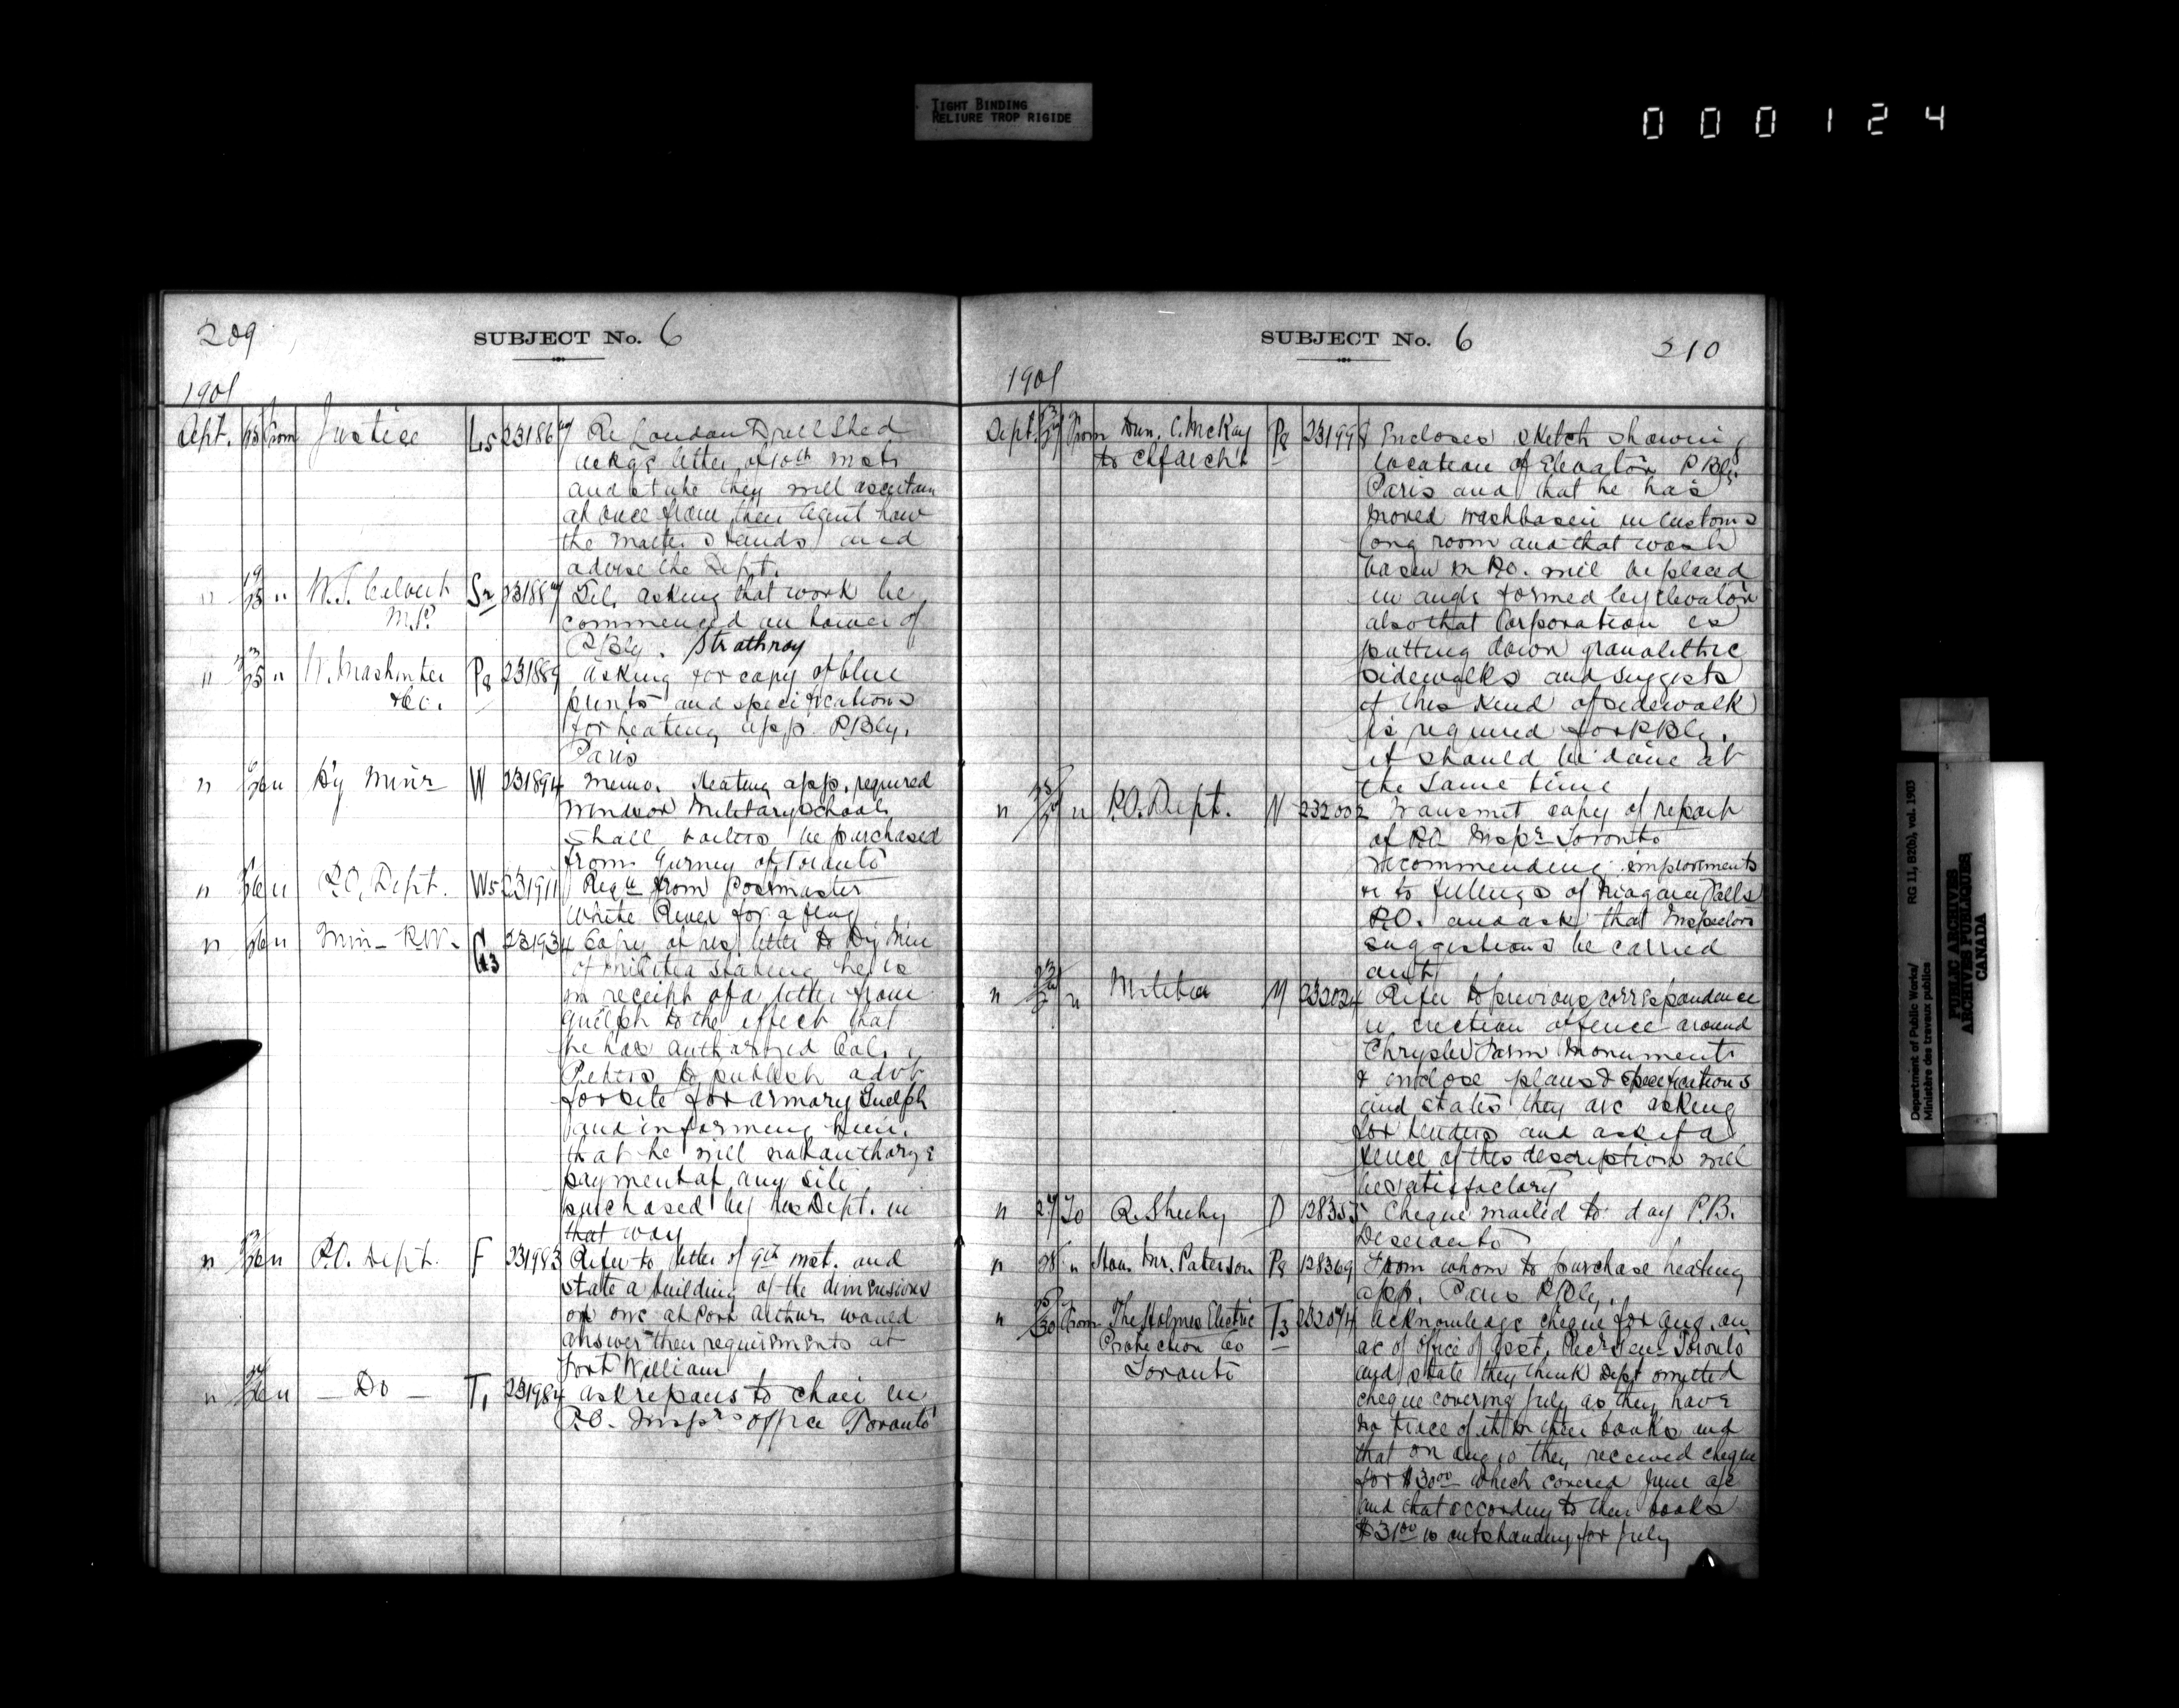 TIGHT BINDING
RELIURE TROP RIGIDE
000124
209
SUBJECT No. 6
1901
Sept. From Justice L5 231867 Re London Drill Shed
ackge letter of 10th inst
and state they will ascertain
at once from their Agent how
the matter stands and
advise the Dept.
" 19/25 " W.S. Calvert Sr 231887 Tel. asking that work be
M.P. commenced on tower of
P/Bly. Strathroy
" 23/25 " & Co. P8 231889 asking for copy of blue
prints and specifications
for heating app. P/Bly.
Paris
" " Dy Minr W 231894 Memo. Heating app. required
Windsor Military School
Shall boilers be purchased
from Gurney of Toronto
" " P.O. Dept. W5 231911 Reqn from Postmaster
White River for a flag
" " Min- R.W. G3 231934 Copy of letter to Dy Min
of Militia stating he is
in receipt of a letter from
Guelph to the effect that
he has authorized Col.
Peters to publish advt
for site for armory Guelph
and informing him
that he will not authorize
payment of any site
purchased by his Dept. in
that way
" " P.O. Dept. F 231983 Refer to letter of 9th inst. and
state a building of the dimensions
of one at Port Arthur would
answer their requirements at
Fort William
" " — Do — T1 231984 ask repairs to chair in
P.O. Inspr's office Toronto
SUBJECT No. 6
210
1901
Sept. From Dun. C. McKay P8 231998 Encloses sketch showing
to Chf Arch't location of Elevator P Bly
Paris and that he has
moved washbasin in Customs
long room and that wash
basin in P.O. will be placed
in angle formed by elevator
also that Corporation is
putting down granolithic
sidewalks and suggests
if this kind of sidewalk
is required for P Bly.
it should be done at
the same time
" " P.O. Dept. N 232002 Transmit copy of report
of P.O. Inspr Toronto
recommending improvements
re to fittings of Niagara Falls
P.O. and ask that Inspectors
suggestions be carried
out
" " Militia M 232024 Refer to previous correspondence
re erection of fence around
Chrysler Farm Monument
& enclose plans & specifications
and states they are asking
for tenders and ask if a
fence of this description will
be satisfactory
" 27 To R. Sheehy D 128355 Cheque mailed to day P.B.
Deseronto
" 28 " Hon. Mr. Paterson P8 128369 From whom to purchase heating
app. Paris P/Bly.
" /30 From The Holmes Electric T3 232074 acknowledge cheque for Aug. on
Protection Co ac of office of Asst. Rec'r Gen. Toronto
Toronto and state they think Dept omitted
cheque covering July as they have
no trace of it in their books and
that on Aug 10 they received cheque
for $30.00 which covered June a/c
and that according to their books
$31.00 is outstanding for July
Department of Public Works/
Ministère des travaux publics
RG 11, B2(b), vol. 1903
PUBLIC ARCHIVES
ARCHIVES PUBLIQUES
CANADA